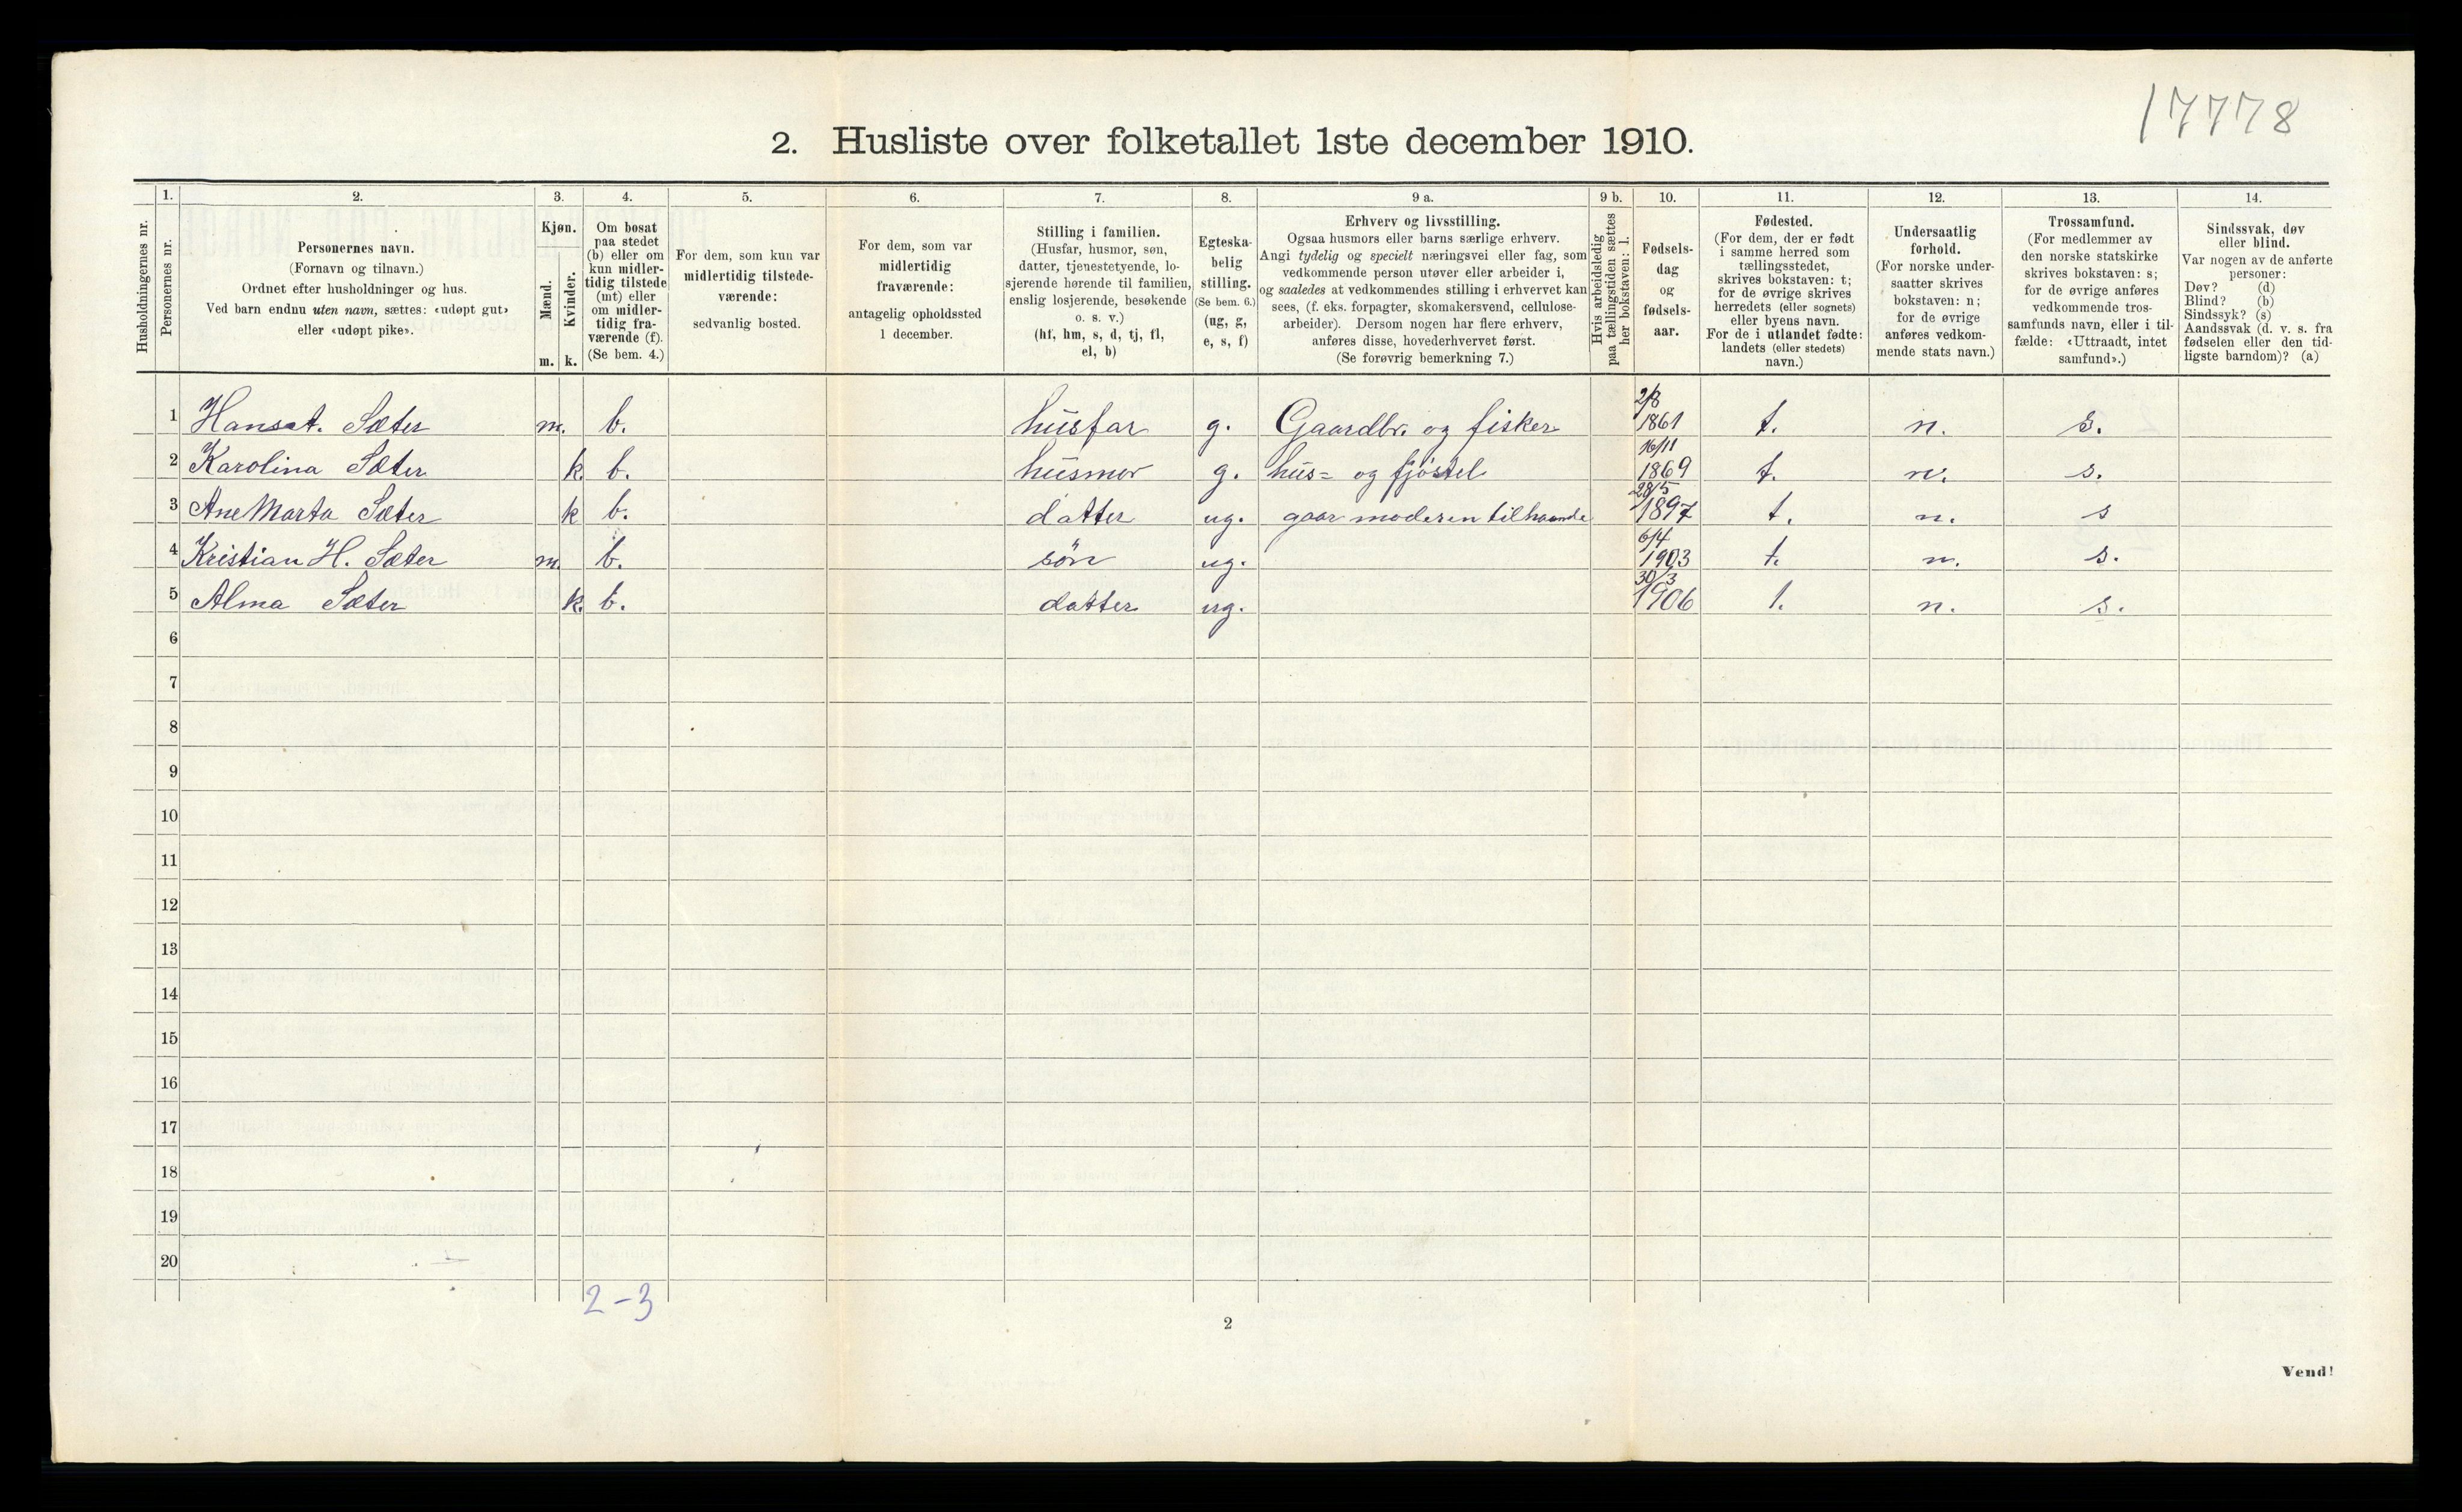 17778
2. Husliste over folketallet 1ste december 1910.
Husholdningernes nr.
1.
Personernes nr.
2.
Personernes navn.
(Fornavn og tilnavn.)
Ordnet efter husholdninger og hus.
Ved barn endnu uten navn, sættes: «udøpt gut»
eller «udøpt pike».
3.
Kjøn.
Mænd.
m.
Kvinder.
k.
4.
Om bosat
paa stedet
(b) eller om
kun midler-
tidig tilstede
(mt) eller
om midler-
tidig fra-
værende (f).
(Se bem. 4.)
5.
For dem, som kun var
midlertidig tilstede-
værende:
sedvanlig bosted.
6.
For dem, som var
midlertidig
fraværende:
antagelig opholdssted
1 december.
7.
Stilling i familien.
(Husfar, husmor, søn,
datter, tjenestetyende, lo-
sjerende hørende til familien,
enslig losjerende, besøkende
o. s. v.)
(hf, hm, s, d, tj, fl,
el, b)
8.
Egteska-
belig
stilling.
(Se bem. 6.)
(ug, g,
e, s, f)
9 a.
Erhverv og livsstilling.
Ogsaa husmors eller barns særlige erhverv.
Angi tydelig og specielt næringsvei eller fag, som
vedkommende person utøver eller arbeider i,
og saaledes at vedkommendes stilling i erhvervet kan
sees, (f. eks. forpagter, skomakersvend, cellulose-
arbeider). Dersom nogen har flere erhverv,
anføres disse, hovederhvervet først.
(Se forøvrig bemerkning 7.)
9 b.
Hvis arbeidsledig
paa tællingstiden sættes
her bokstaven: l.
10.
Fødsels-
dag
og
fødsels-
aar.
11.
Fødested.
(For dem, der er født
i samme herred som
tællingsstedet,
skrives bokstaven: t;
for de øvrige skrives
herredets (eller sognets)
eller byens navn.
For de i utlandet fødte:
landets (eller stedets)
navn.)
12.
Undersaatlig
forhold.
(For norske under-
saatter skrives
bokstaven: n;
for de øvrige
anføres vedkom-
mende stats navn.)
13.
Trossamfund.
(For medlemmer av
den norske statskirke
skrives bokstaven: s;
for de øvrige anføres
vedkommende tros-
samfunds navn, eller i til-
fælde: «Uttraadt, intet
samfund».)
14.
Sindssvak, døv
eller blind.
Var nogen av de anførte
personer:
Døv? (d)
Blind? (b)
Sindssyk? (s)
Aandssvak (d. v. s. fra
fødselen eller den tid-
ligste barndom)? (a)
1 Hans A. Sæter m. b. husfar g. Gaardbr. og fisker 2/8 1861 t. n. s.
2 Karolina Sæter k. b. husmor g. hus= og fjøstel 16/11 1869 t. n. s.
3 Ane Marta Sæter k b. datter ug. gaar moderen tilhaande 28/5 1897 t. n. s
4 Kristian H. Sæter m. b. søn ug. 6/4 1903 t. n. s.
5 Alma Sæter k. b. datter ug. 30/3 1906 t. n. s.
6
7
8
9
10
11
12
13
14
15
16
17
18
19
20
2-3
2
Vend!